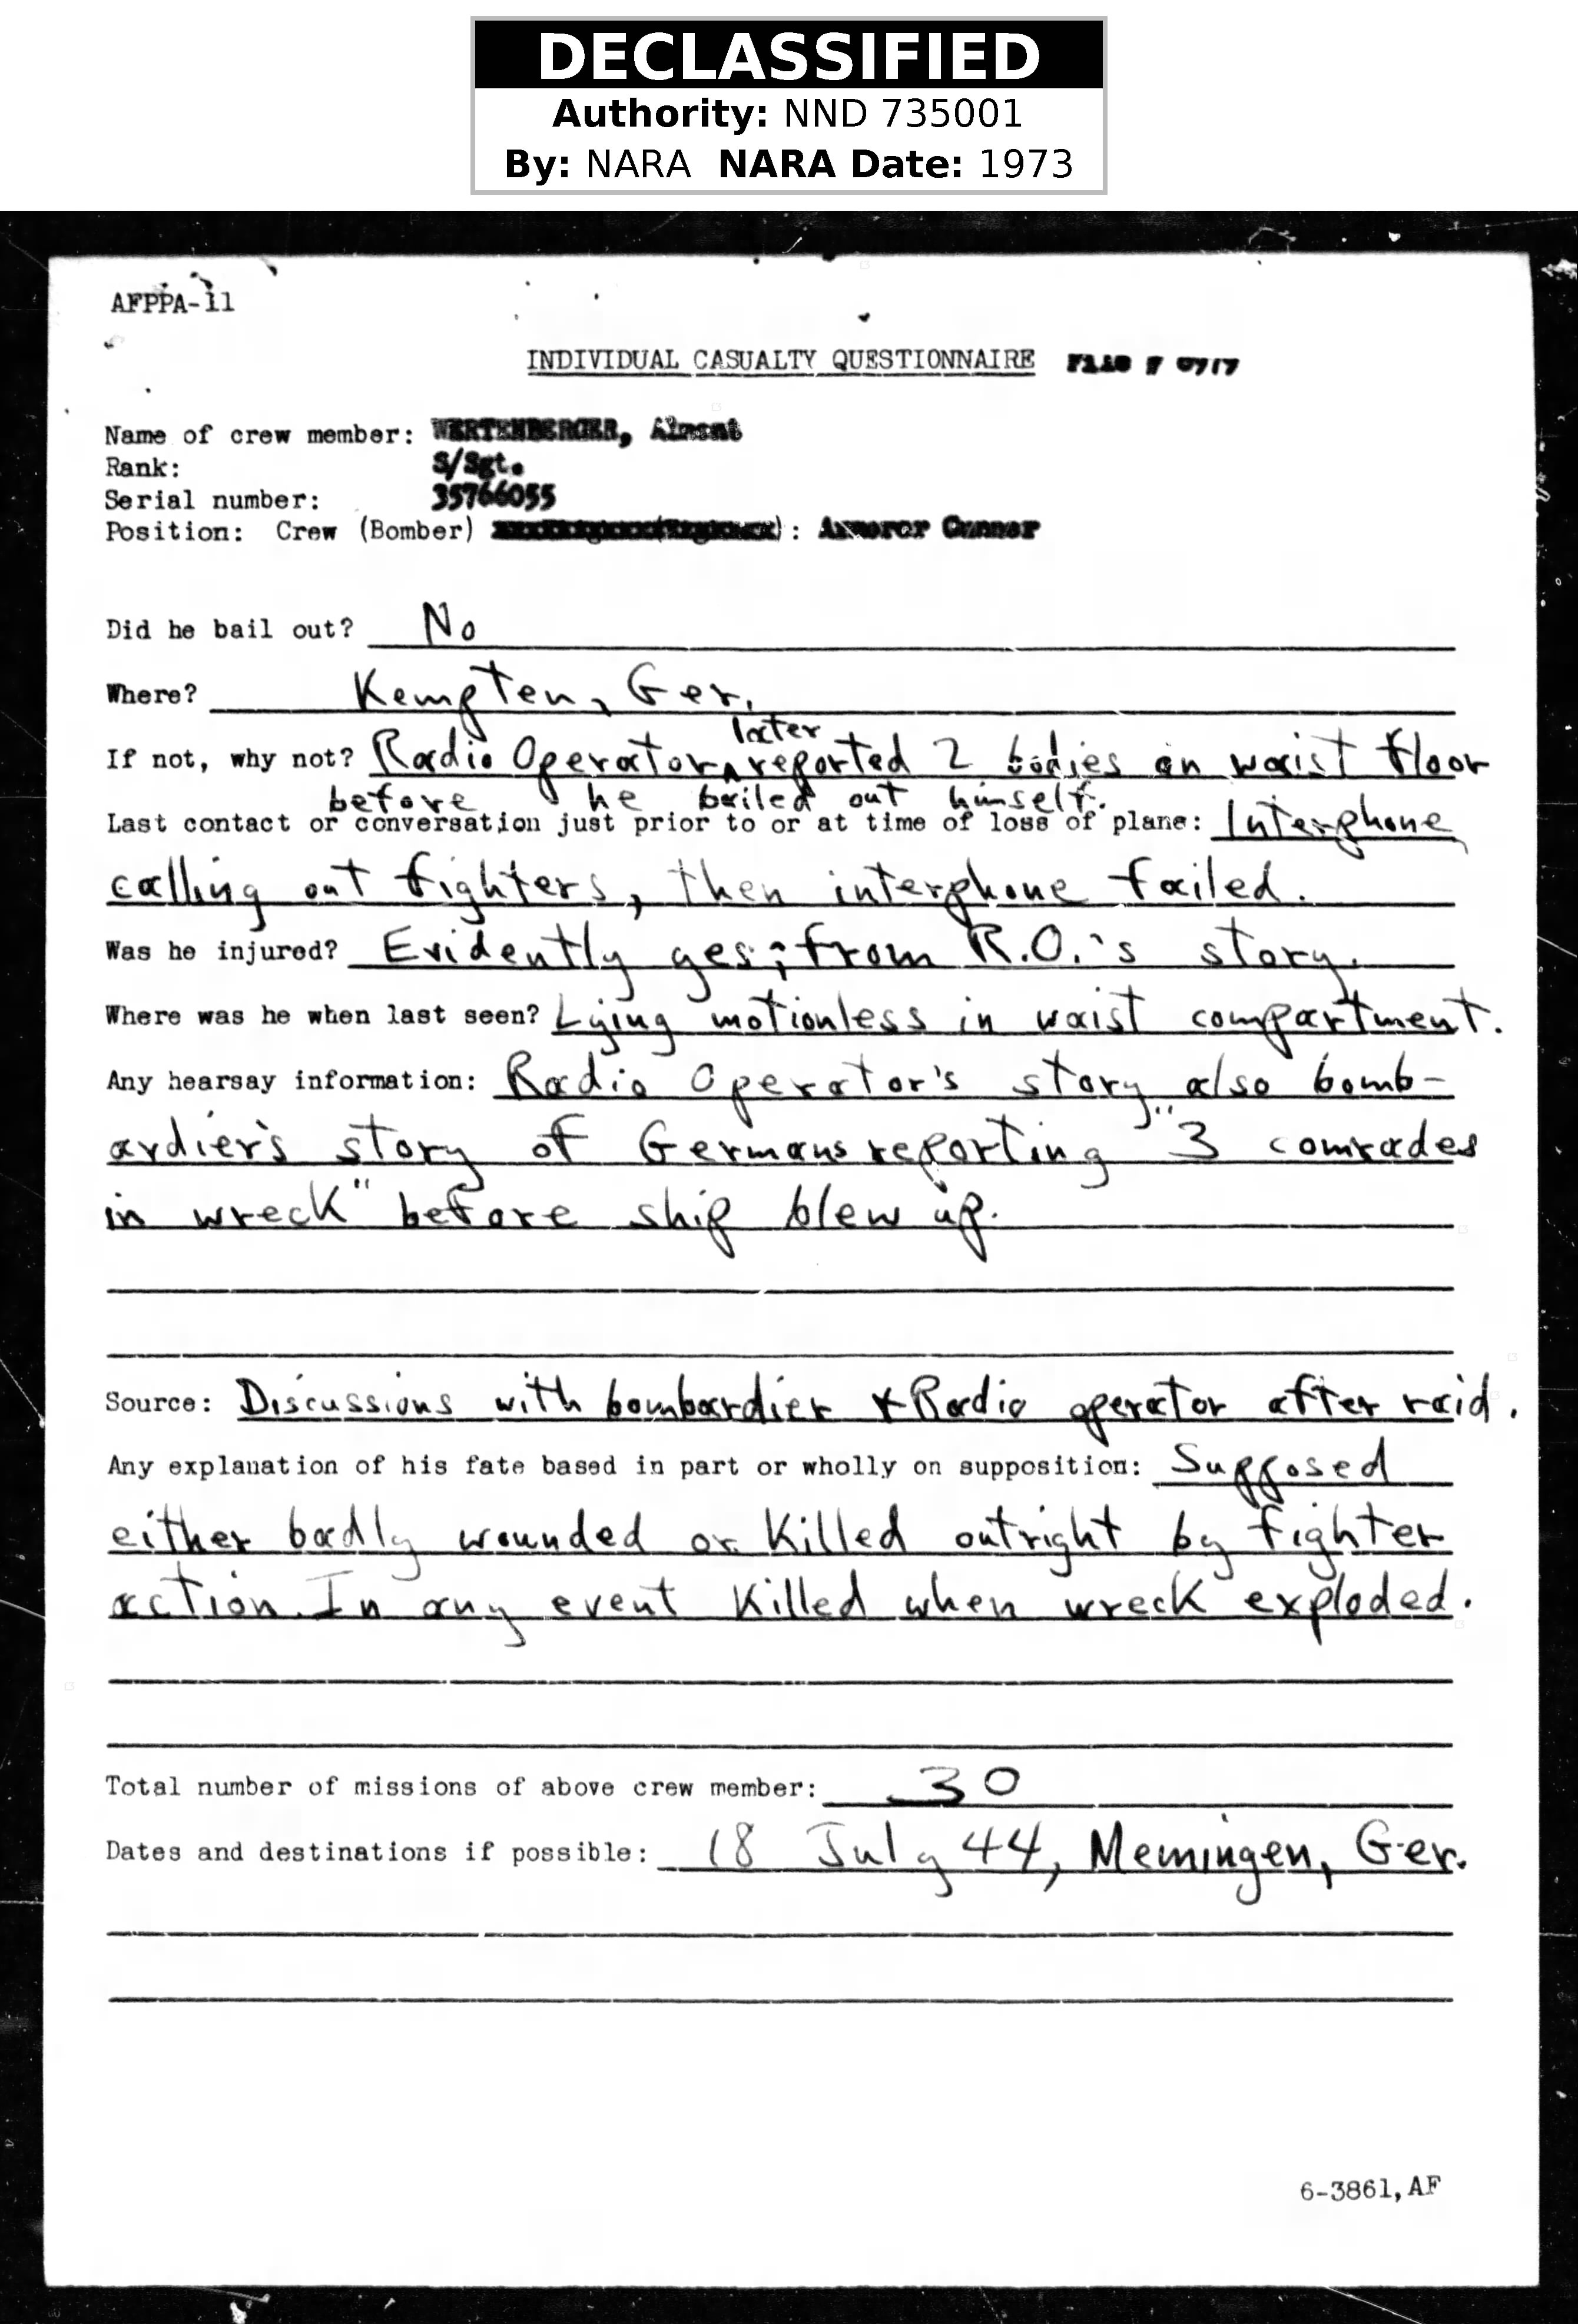 DECLASSIFIED
Authority: NND 735001
By: NARA NARA Date: 1973
AFPPA-11
INDIVIDUAL CASUALTY QUESTIONNAIRE
Name of crew member: WERTENBERGER,
Rank: S/Sgt.
Serial number: 35766055
Position: Crew (Bomber) : Armorer Gunner
Did he bail out? No
Where? Kempten, Ger.
later
If not, why not? Radio Operator reported 2 bodies on waist floor
before he bailed out himself.
Last contact or conversation just prior to or at time of loss of plane: Interphone
calling out fighters, then interphone failed.
Was he injured? Evidently yes; from R.O.'s story.
Where was he when last seen? Lying motionless in waist compartment.
Any hearsay information: Radio Operator's story also bomb-
ardier's story of Germans reporting "3 comrades
in wreck" before ship blew up.
Source: Discussions with bombardier & Radio operator after raid.
Any explanation of his fate based in part or wholly on supposition: Supposed
either badly wounded or killed outright by fighter
action. In any event killed when wreck exploded.
Total number of missions of above crew member: 30
Dates and destinations if possible: 18 July 44, Memingen, Ger.
6-3861, AF